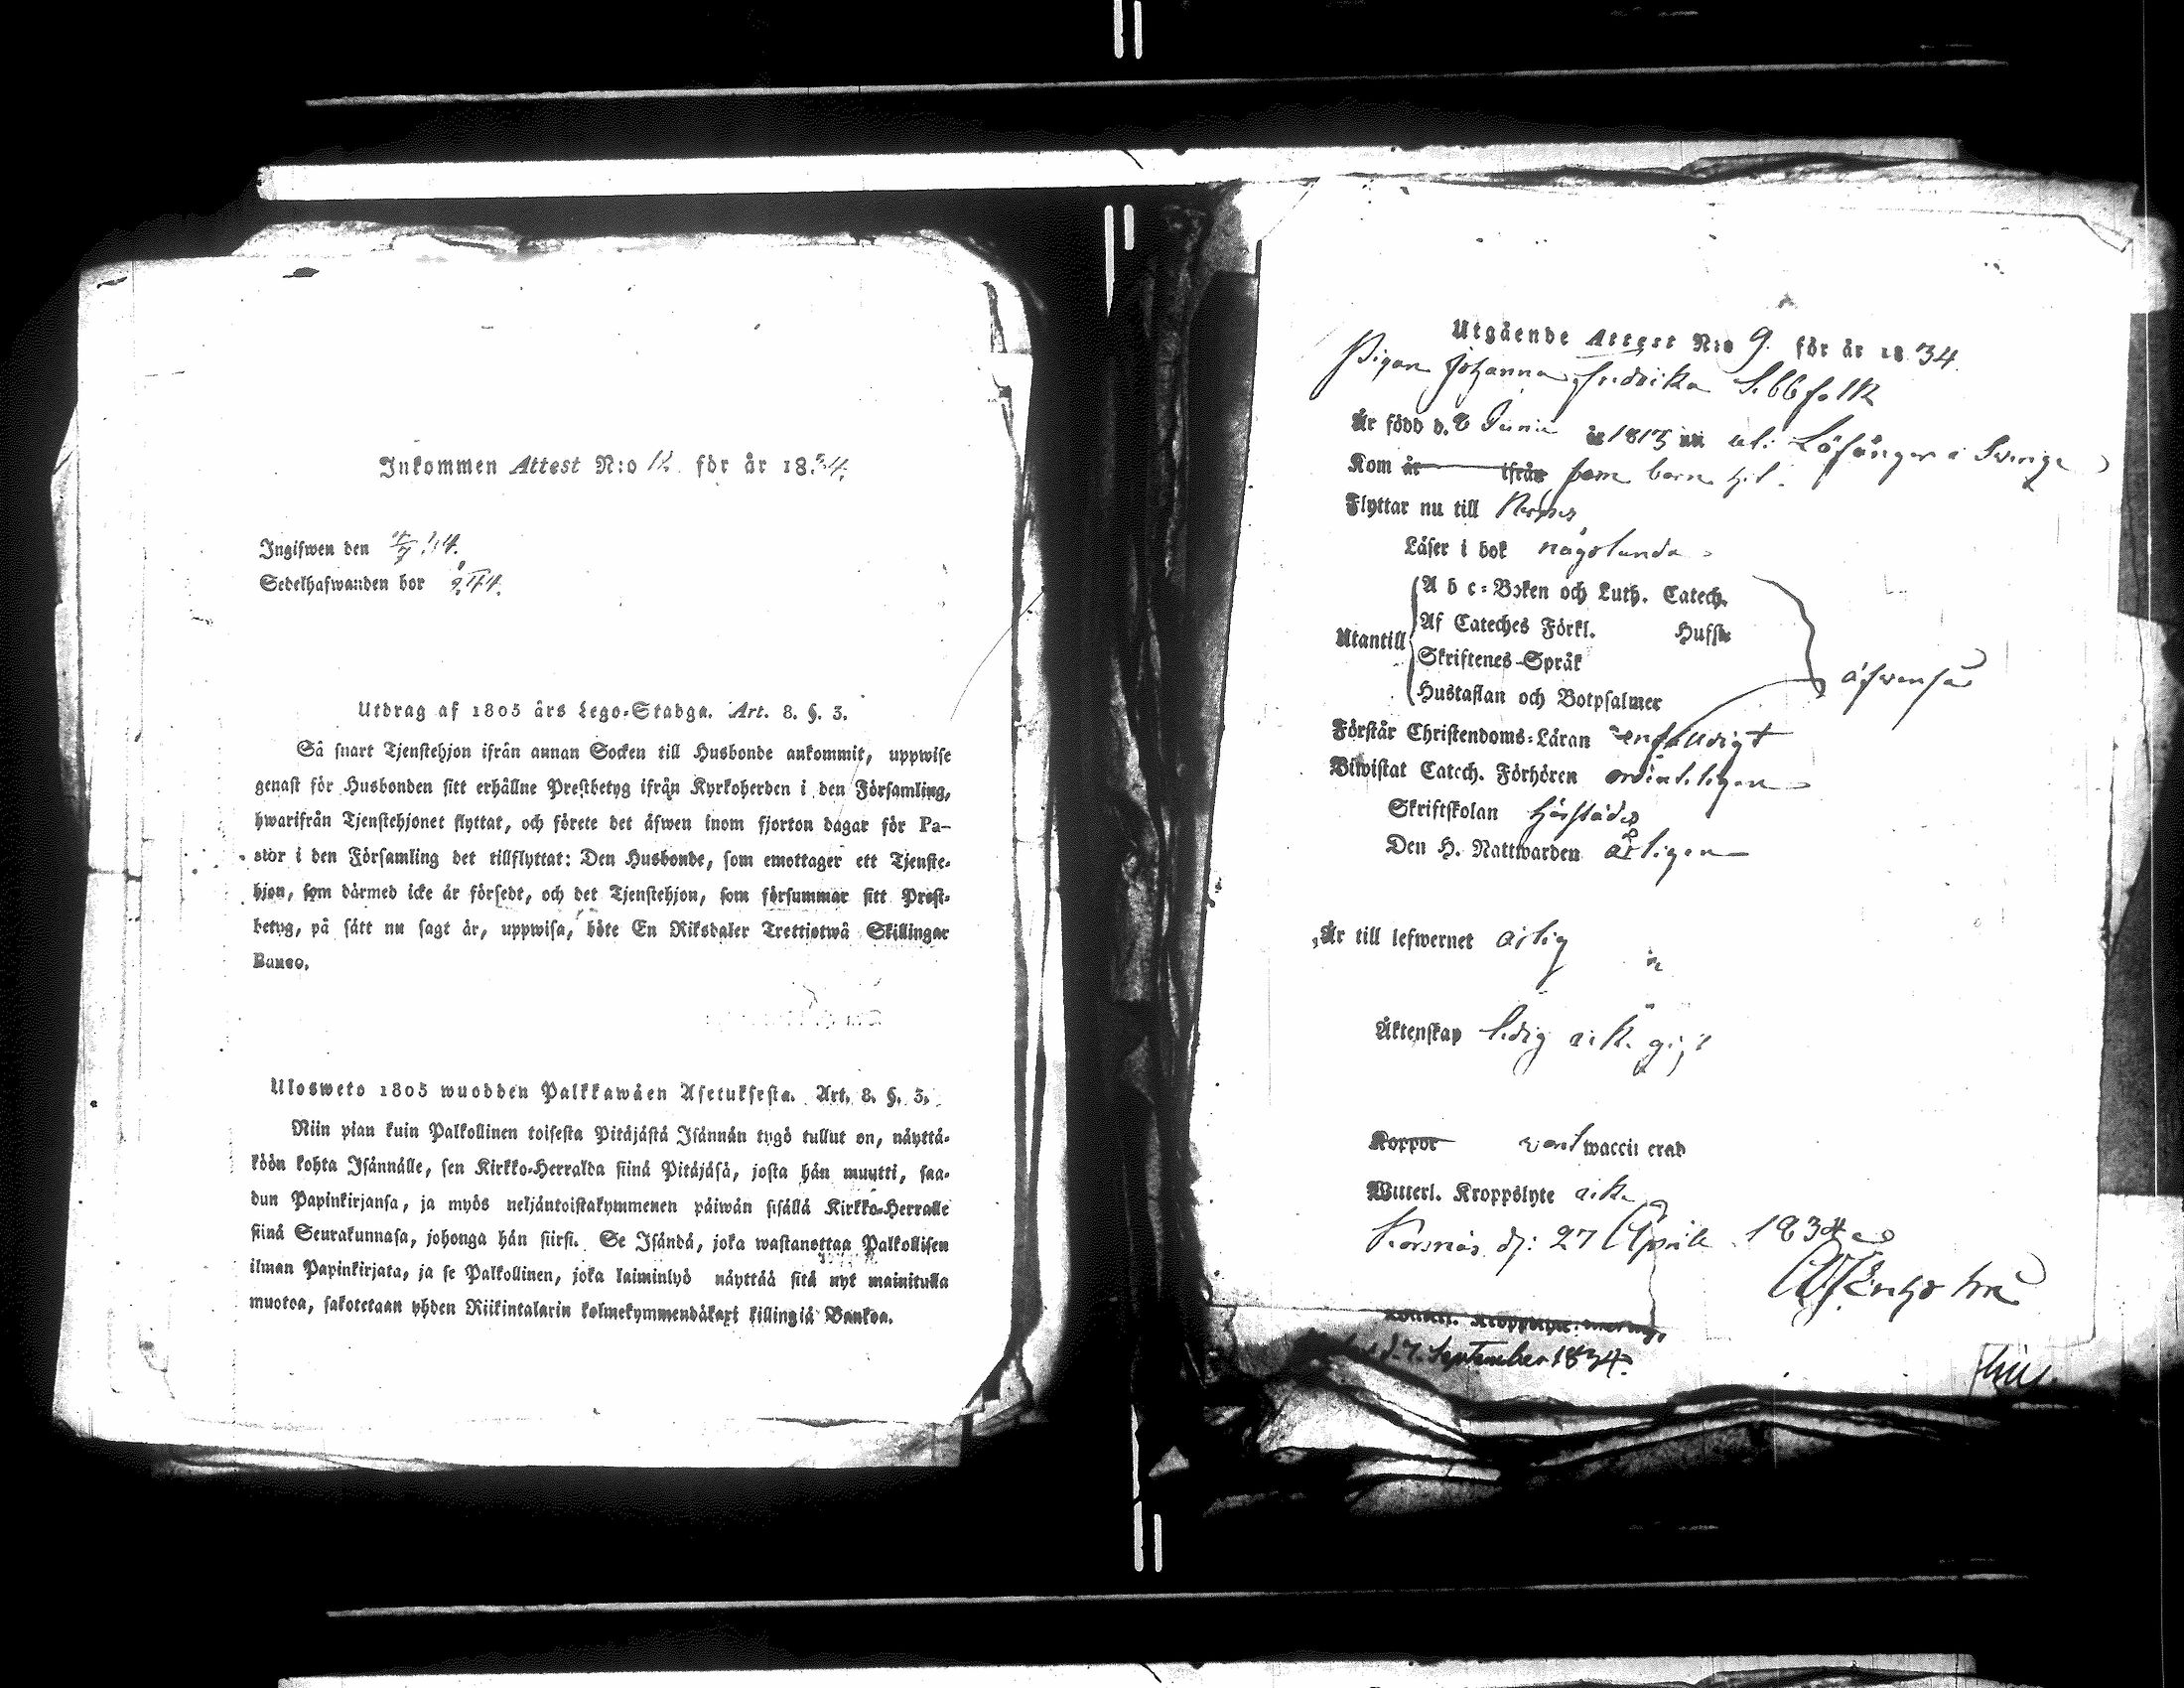 Inkommen Attest N:o 12. för år 1834.
Ingifwen den
Sedelhafwanden bor
Utdrag af 1805 års Lego-Stadga. Art. 8. §. 3.
Så snart Tjenstehjon ifrån annan Socken till Husbonde ankommit, uppwise
genast för Husbonden sitt erhållne Prestbetyg ifrån Kyrkoherden i den Församling,
hwarifrån Tjenstehjonet flyttat, och förete det äfwen inom fjorton dagar för Pa-
stor i den Församling det tillflyttat: Den Husbonde, som emottager ett Tjenste-
hjon, som därmed icke är försedt, och det Tjenstehjon, som försummar sitt Prest-
betyg, på sätt nu sagt är, uppwisa, böte En Riksdaler Trettiotwå Skillingar
Banco.
Ulosweto 1805 wuodden Palkkawäen Asetuksesta. Art. 8. §. 3.
Niin pian kuin Palkollinen toisesta Pitäjästä Isännän tygö tullut on, näyttä-
köön kohta Isännälle, sen Kirkko-Herralda siinä Pitäjäsä, josta hän muutti, saa-
dun Papinkirjansa, ja myös neljäntoistakymmenen päiwän sisällä Kirkko-Herralle
siinä Seurakunnasa, johonga hän siirsi. Se Isändä, joka wastanottaa Palkollisen
ilman Papinkirjata, ja se Palkollinen, joka laiminlyö näyttää sitä nyt mainitulla
muotoa, sakotetaan yhden Riikintalarin kolmekymmendäkaxi killingiä Bankoa.
Utgående Attest N:o 9. för år 1834.
Pigan Johanna Fredrika Sebbfolk
Är född d. 8 Junii 1813 uti Löfånger i Sverige
Kom år ifrån som barn hit.
Flyttar nu till Nerpes
Läser i bok någolunda
Utantill
A b c-Boken och Luth. Catech.
Af Cateches Förkl. Hufst.
Skriftenes-Språk
Hustaflan och Botpsalmer
äfwenså
Förstår Christendoms-Läran enfaldigt
Biwistat Catech. Förhören ordenteligen
Skriftskolan härstädes
Den H. Nattwarden årligen
Är till lefwernet ärlig
Äktenskap ledig ej gift
Koppor vaccinerad
Witterl. Kroppslyte
Korsnäs d: 27 Aprill 1834
d. 7. September 1834.